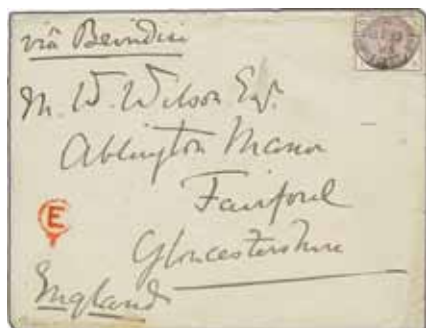 via Brindisi
M. W. Wilson Esqr.
Ablington Manor
Fairford
E
Gloucestershire
England